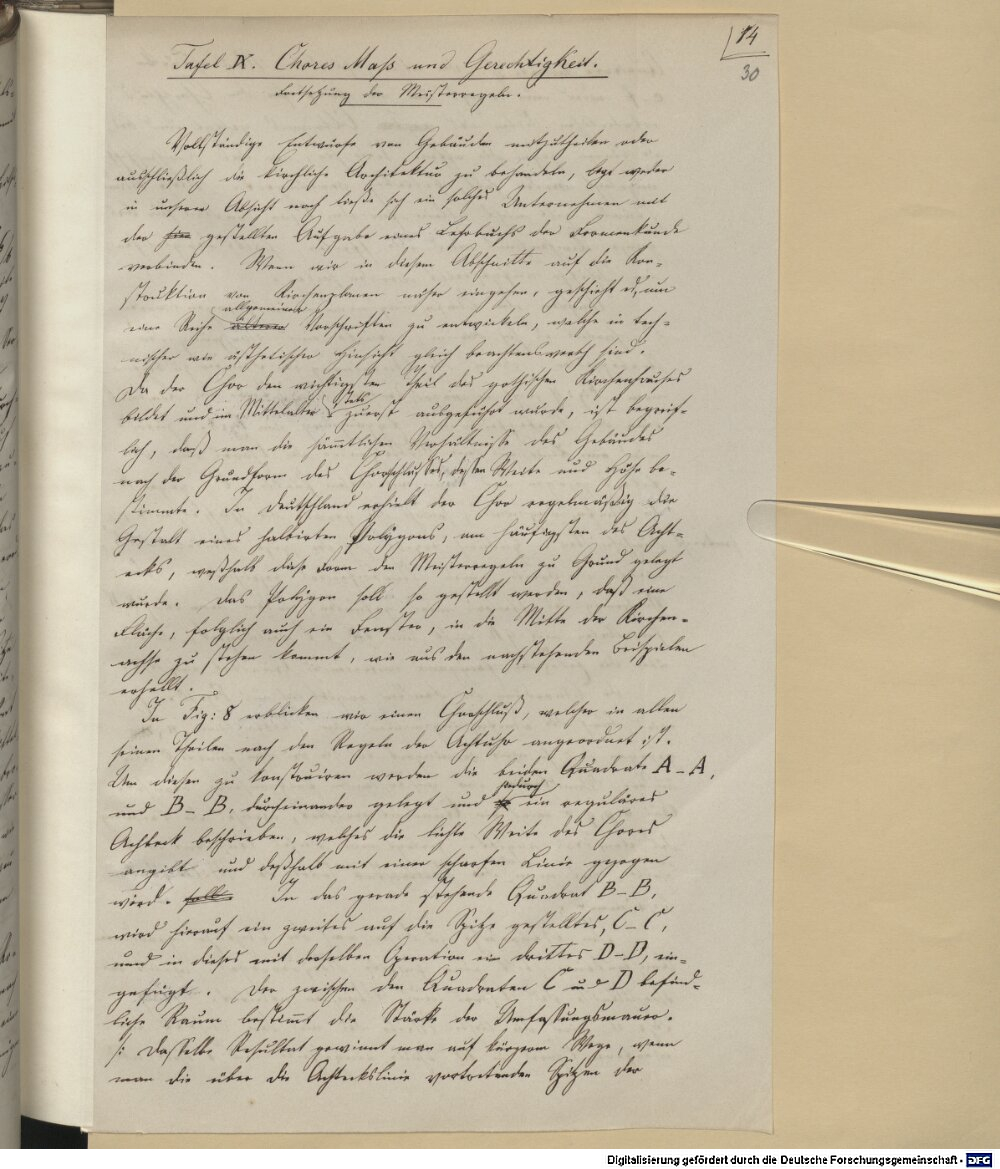 14
30
Tafel IX. Chores Maß und Gerechtigkeit.
Fortsetzung der Meisterregeln.
Vollständige Entwürfe von Gebäuden mitzutheilen oder
ausschließlich die kirchliche Architektur zu behandeln, liegt weder
in unserer Absicht noch ließe sich ein solches Unternehmen mit
der gestellten Aufgabe eines Lehrbuchs der Formenkunde
verbinden. Wenn wir in diesem Abschnitte auf die Kon-
struktion von Kirchenplanen näher eingehen, geschieht es, um
eine Reihe allgemeiner Vorschriften zu entwickeln, welche in tech-
nischer wie ästhetischer Hinsicht gleich beachtenswerth sind.
Da der Chor den wichtigsten Theil des gothischen Kirchenhauses
bildet und im Mittelalter stets zuerst ausgeführt wurde, ist begreif-
lich, daß man die sämmtlichen Verhältnisse des Gebäudes
nach der Grundform des Chorschlusses, dessen Weite und Höhe be-
stimmte. In Deutschland erhielt der Chor regelmäßig die
Gestalt eines halbirten Polygons, am häufigsten des Acht-
ecks, weßhalb diese Form den Meisterregeln zu Grund gelegt
wurde. Das Polygon soll so gestellt werden, daß eine
Fläche, folglich auch ein Fenster, in die Mitte der Kirchen-
achse zu stehen kommt, wie aus den nachstehenden Beispielen
erhellt.
In Fig: 8 erblicken wir einen Chorschluß, welcher in allen
seinen Theilen nach den Regeln der Achtuhr angeordnet ist.
Um diesen zu konstruiren werden die beiden Quadrate A–A,
und B–B, durcheinander gelegt und hiedurch ein reguläres
Achteck beschrieben, welches die lichte Weite des Chores
angibt und deßhalb mit einer scharfen Linie gezogen
wird. In das gerade stehende Quadrat B–B,
wird hierauf ein zweites auf die Spitze gestelltes, C–C,
und in dieses mit derselben Operation ein drittes D–D, ein-
gefügt. Der zwischen den Quadraten C und D befind-
liche Raum bestimmt die Stärke der Umfassungsmauer.
/: Dasselbe Resultat gewinnt man auf kürzerem Wege, wenn
man die über die Achteckslinie vortretenden Spitzen der
Digitalisierung gefördert durch die Deutsche Forschungsgemeinschaft - DFG